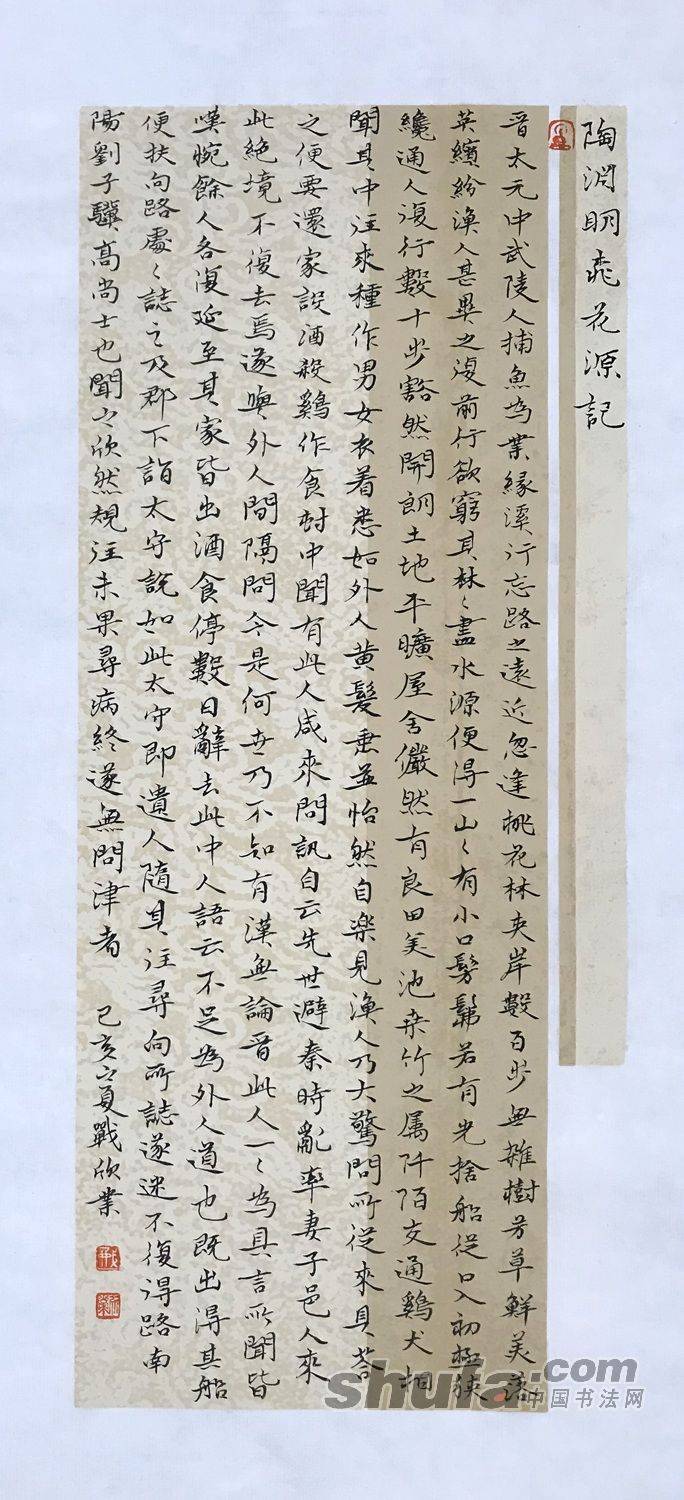 陶淵明桃花源記
晉太元中武陵人捕魚為業緣溪行忘路之遠近忽逢桃花林夾岸數百步無雜樹芳草鮮美落
英繽紛漁人甚異之復前行欲窮其林〻盡水源便得一山〻有小口髣髴若有光捨船從口入初極狹
纔通人復行數十步豁然開朗土地平曠屋舍儼然有良田美池桑竹之属阡陌交通鷄犬相
聞其中往來種作男女衣着悉如外人黄髮垂並怡然自楽見漁人乃大驚問所從來具荅
之便要還家設酒殺鷄作食村中聞有此人咸來問訊自云先世避秦時亂率妻子邑人來
此絶境不復去焉遂與外人間隔問今是何世乃不知有漢無論晉此人一〻為具言所聞皆
嘆惋餘人各復延至其家皆出酒食停數日辭去此中人語云不足為外人道也既出得其船
便扶向路處〻誌之及郡下詣太守說如此太守即遣人隨其往尋向所誌遂迷不復得路南
陽劉子驥高尚士也聞之欣然規往未果尋病終遂無問津者 己亥夏戰欣業
shufa.com
中国书法网